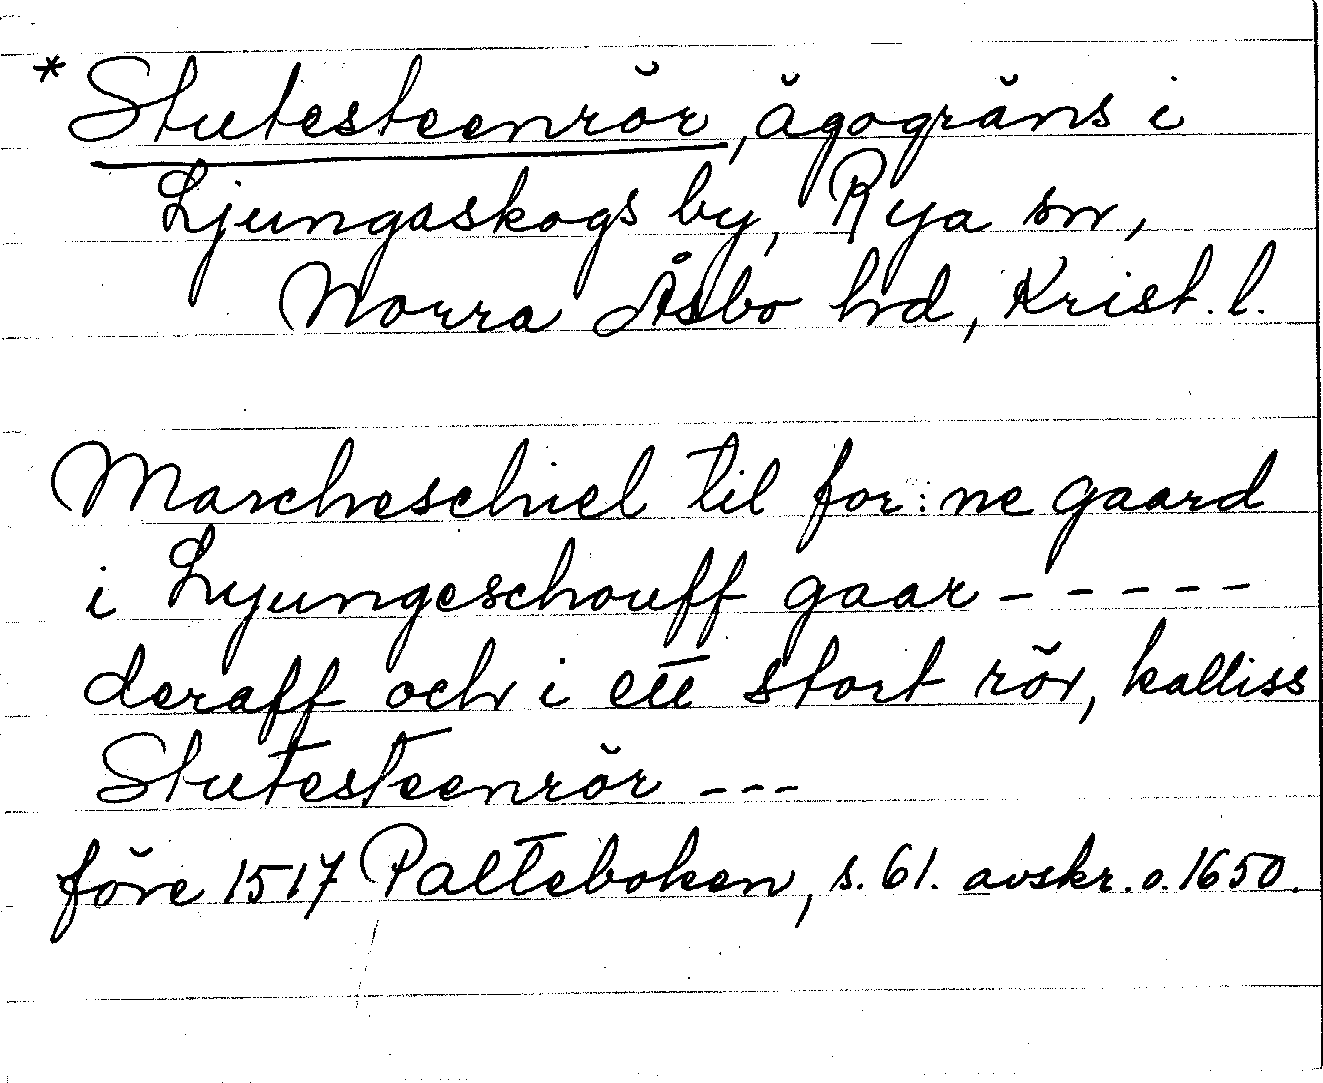 * Stutesteenrör, ägogräns i
Ljungaskogs by, Rya sn,
Norra Åsbo hd, Krist. l.
Marcheschiel til for: ne gaard
i Liyungeschouff gaar - - - - -
deraff och i ett stort rör, kalliss
Stutesteenrör - - -
före 1517 Palteboken, s. 61. avskr. o. 1650.